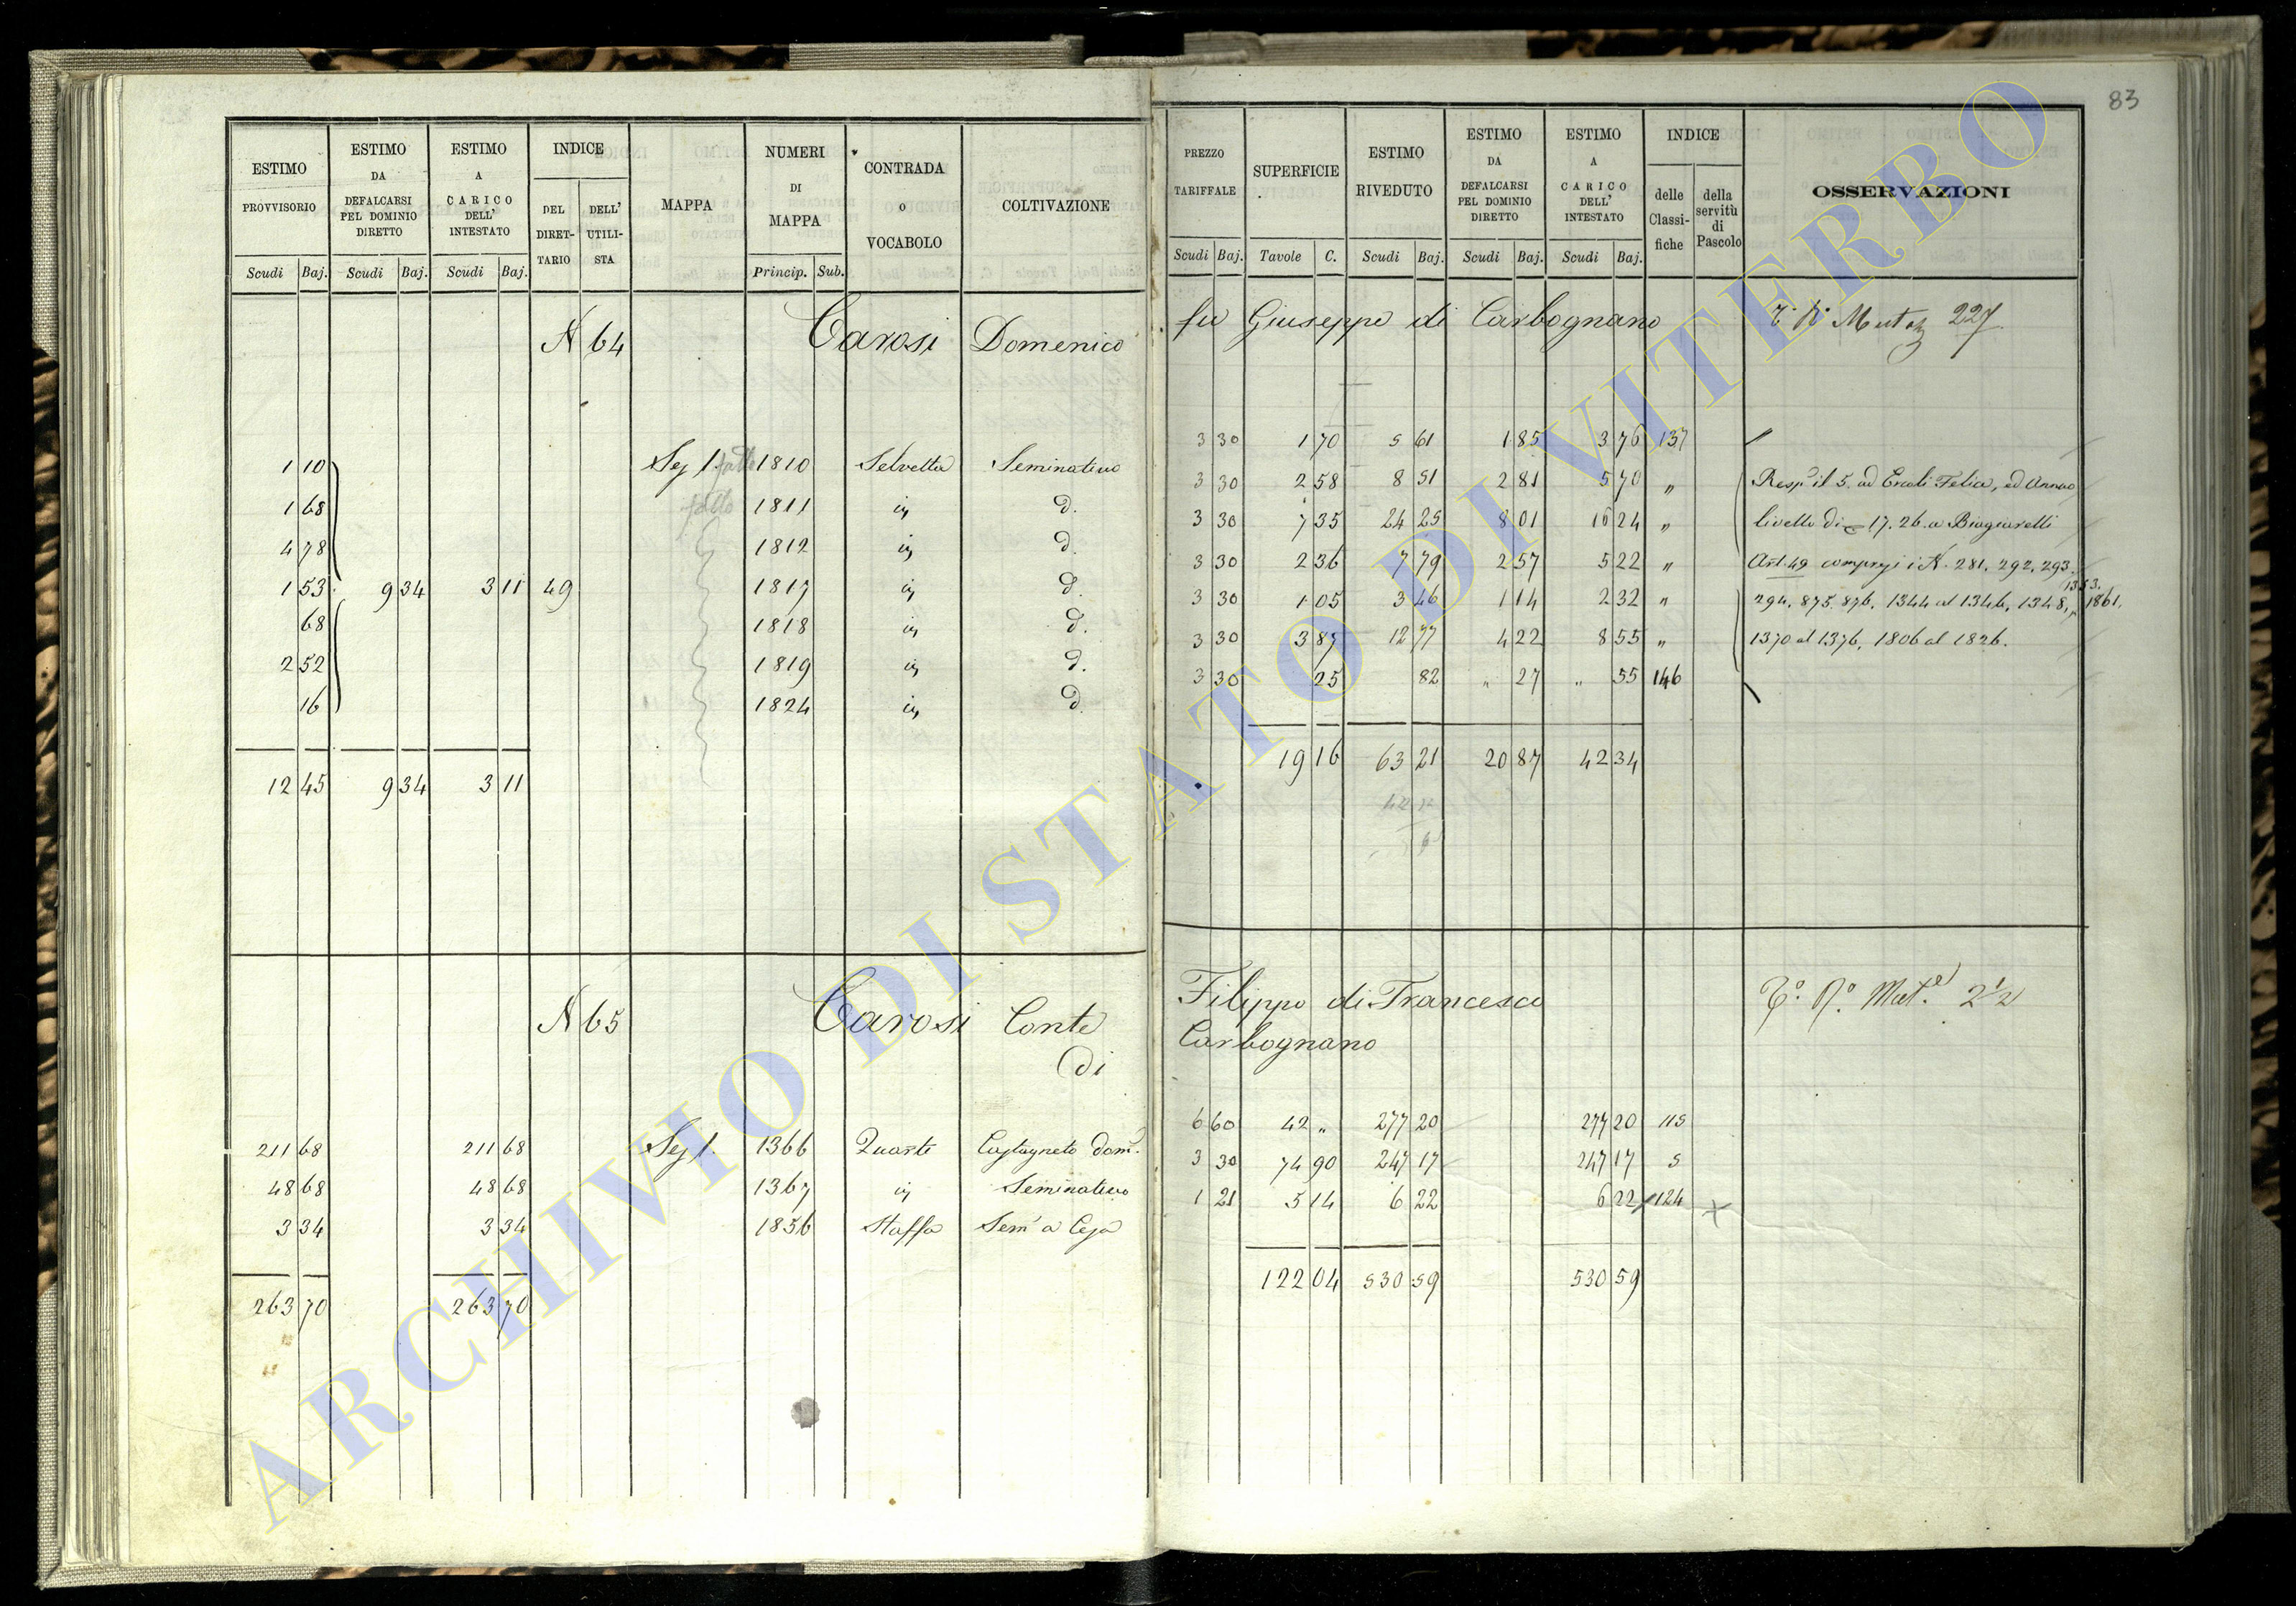 83
ESTIMO PROVVISORIO
ESTIMO DA DEFALCARSI PEL DOMINIO DIRETTO
ESTIMO A CARICO DELL' INTESTATO
INDICE
DEL DIRETTARIO
DELL' UTILISTA
MAPPA
NUMERI DI MAPPA
CONTRADA o VOCABOLO
COLTIVAZIONE
Scudi Baj. Scudi Baj. Scudi Baj. Princip. Sub.
PREZZO TARIFFALE
SUPERFICIE
ESTIMO RIVEDUTO
ESTIMO DA DEFALCARSI PEL DOMINIO DIRETTO
ESTIMO A CARICO DELL' INTESTATO
INDICE
delle Classifiche
della servitù di Pascolo
OSSERVAZIONI
Scudi Baj. Tavole C. Scudi Baj. Scudi Baj. Scudi Baj.
N 64 Carosi Domenico fu Giuseppe di Carbognano 227
1 10 Sez 1. fatto 1810 Selvetta Seminativo 3 30 1 70 5 61 1 85 3 76 137
1 68 fatto 1811 id. d. 3 30 2 58 8 51 2 81 5 70 " il 5. ad Ercoli Felice, ed Anna
4 78 1812 id. d. 3 30 7 35 24 25 8 01 16 24 " livello di 17. 26. a Biagiarelli
1 53 9 34 3 11 49 1817 id. d. 3 30 2 36 7 79 2 57 5 22 " Art. 49 compresi i N. 281. 292. 293.
68 1818 id. d. 3 30 1 05 3 46 1 14 2 32 " 294. 875. 876. 1344 al 1346, 1348, 1353. 1861.
2 52 1819 id. d. 3 30 3 87 12 77 4 22 8 55 " 1370 al 1376, 1806 al 1826.
16 1824 id. d. 3 30 25 82 " 27 " 55 146
12 45 9 34 3 11 19 16 63 21 20 87 42 34
N 65 Carosi Conte Filippo di Francesco
di Carbognano
211 68 211 68 Sez 1. 1366 Quarti Castagneto dom. 6 60 42 " 277 20 277 20 115
48 68 48 68 1367 id. Seminativo 3 30 74 90 247 17 247 17 5
3 34 3 34 1856 Staffa Sem. a 1 21 5 14 6 22 6 22 124 x
263 70 263 70 122 04 530 59 530 59
ARCHIVIO DI STATO DI VITERBO